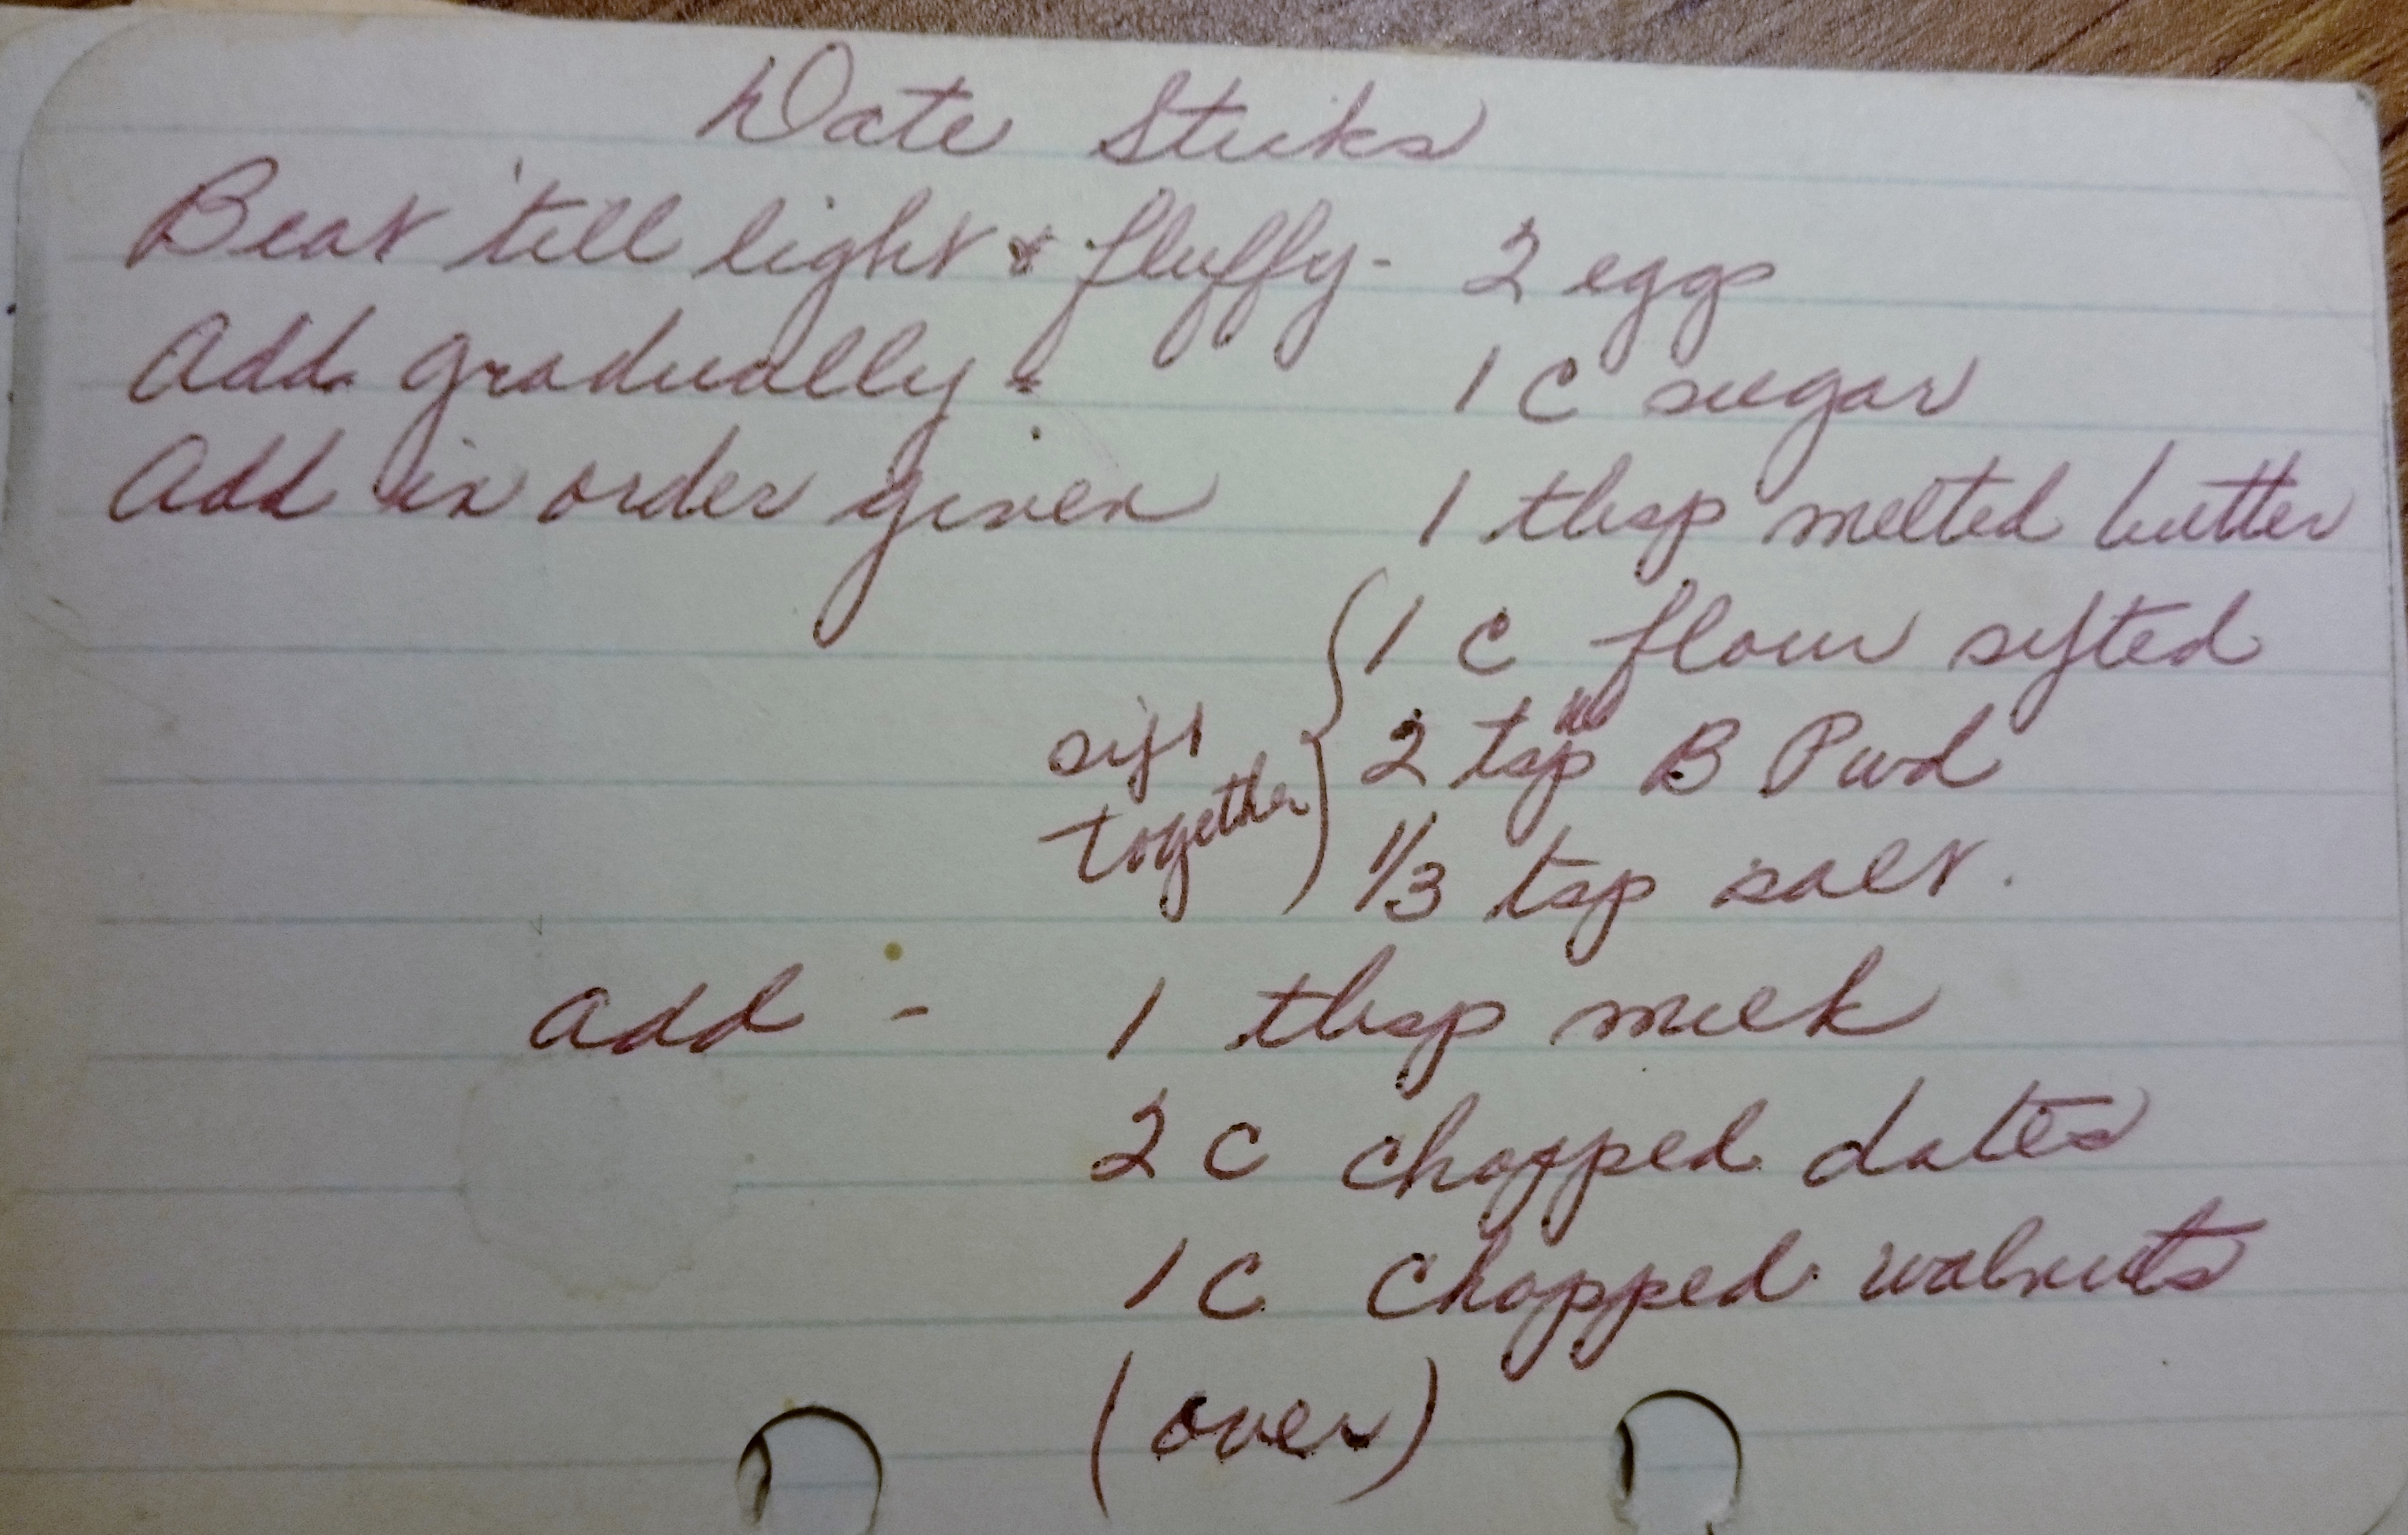 Date Sticks
Beat 'till light & fluffy - 2 eggs
Add gradually - 1 C sugar
Add in order given 1 tbsp melted butter
1 C flour sifted
sift 2 tsp B Pwd
together 1/3 tsp salt.
add - 1 tbsp milk
2 C chopped dates
1 C chopped walnuts
(over)